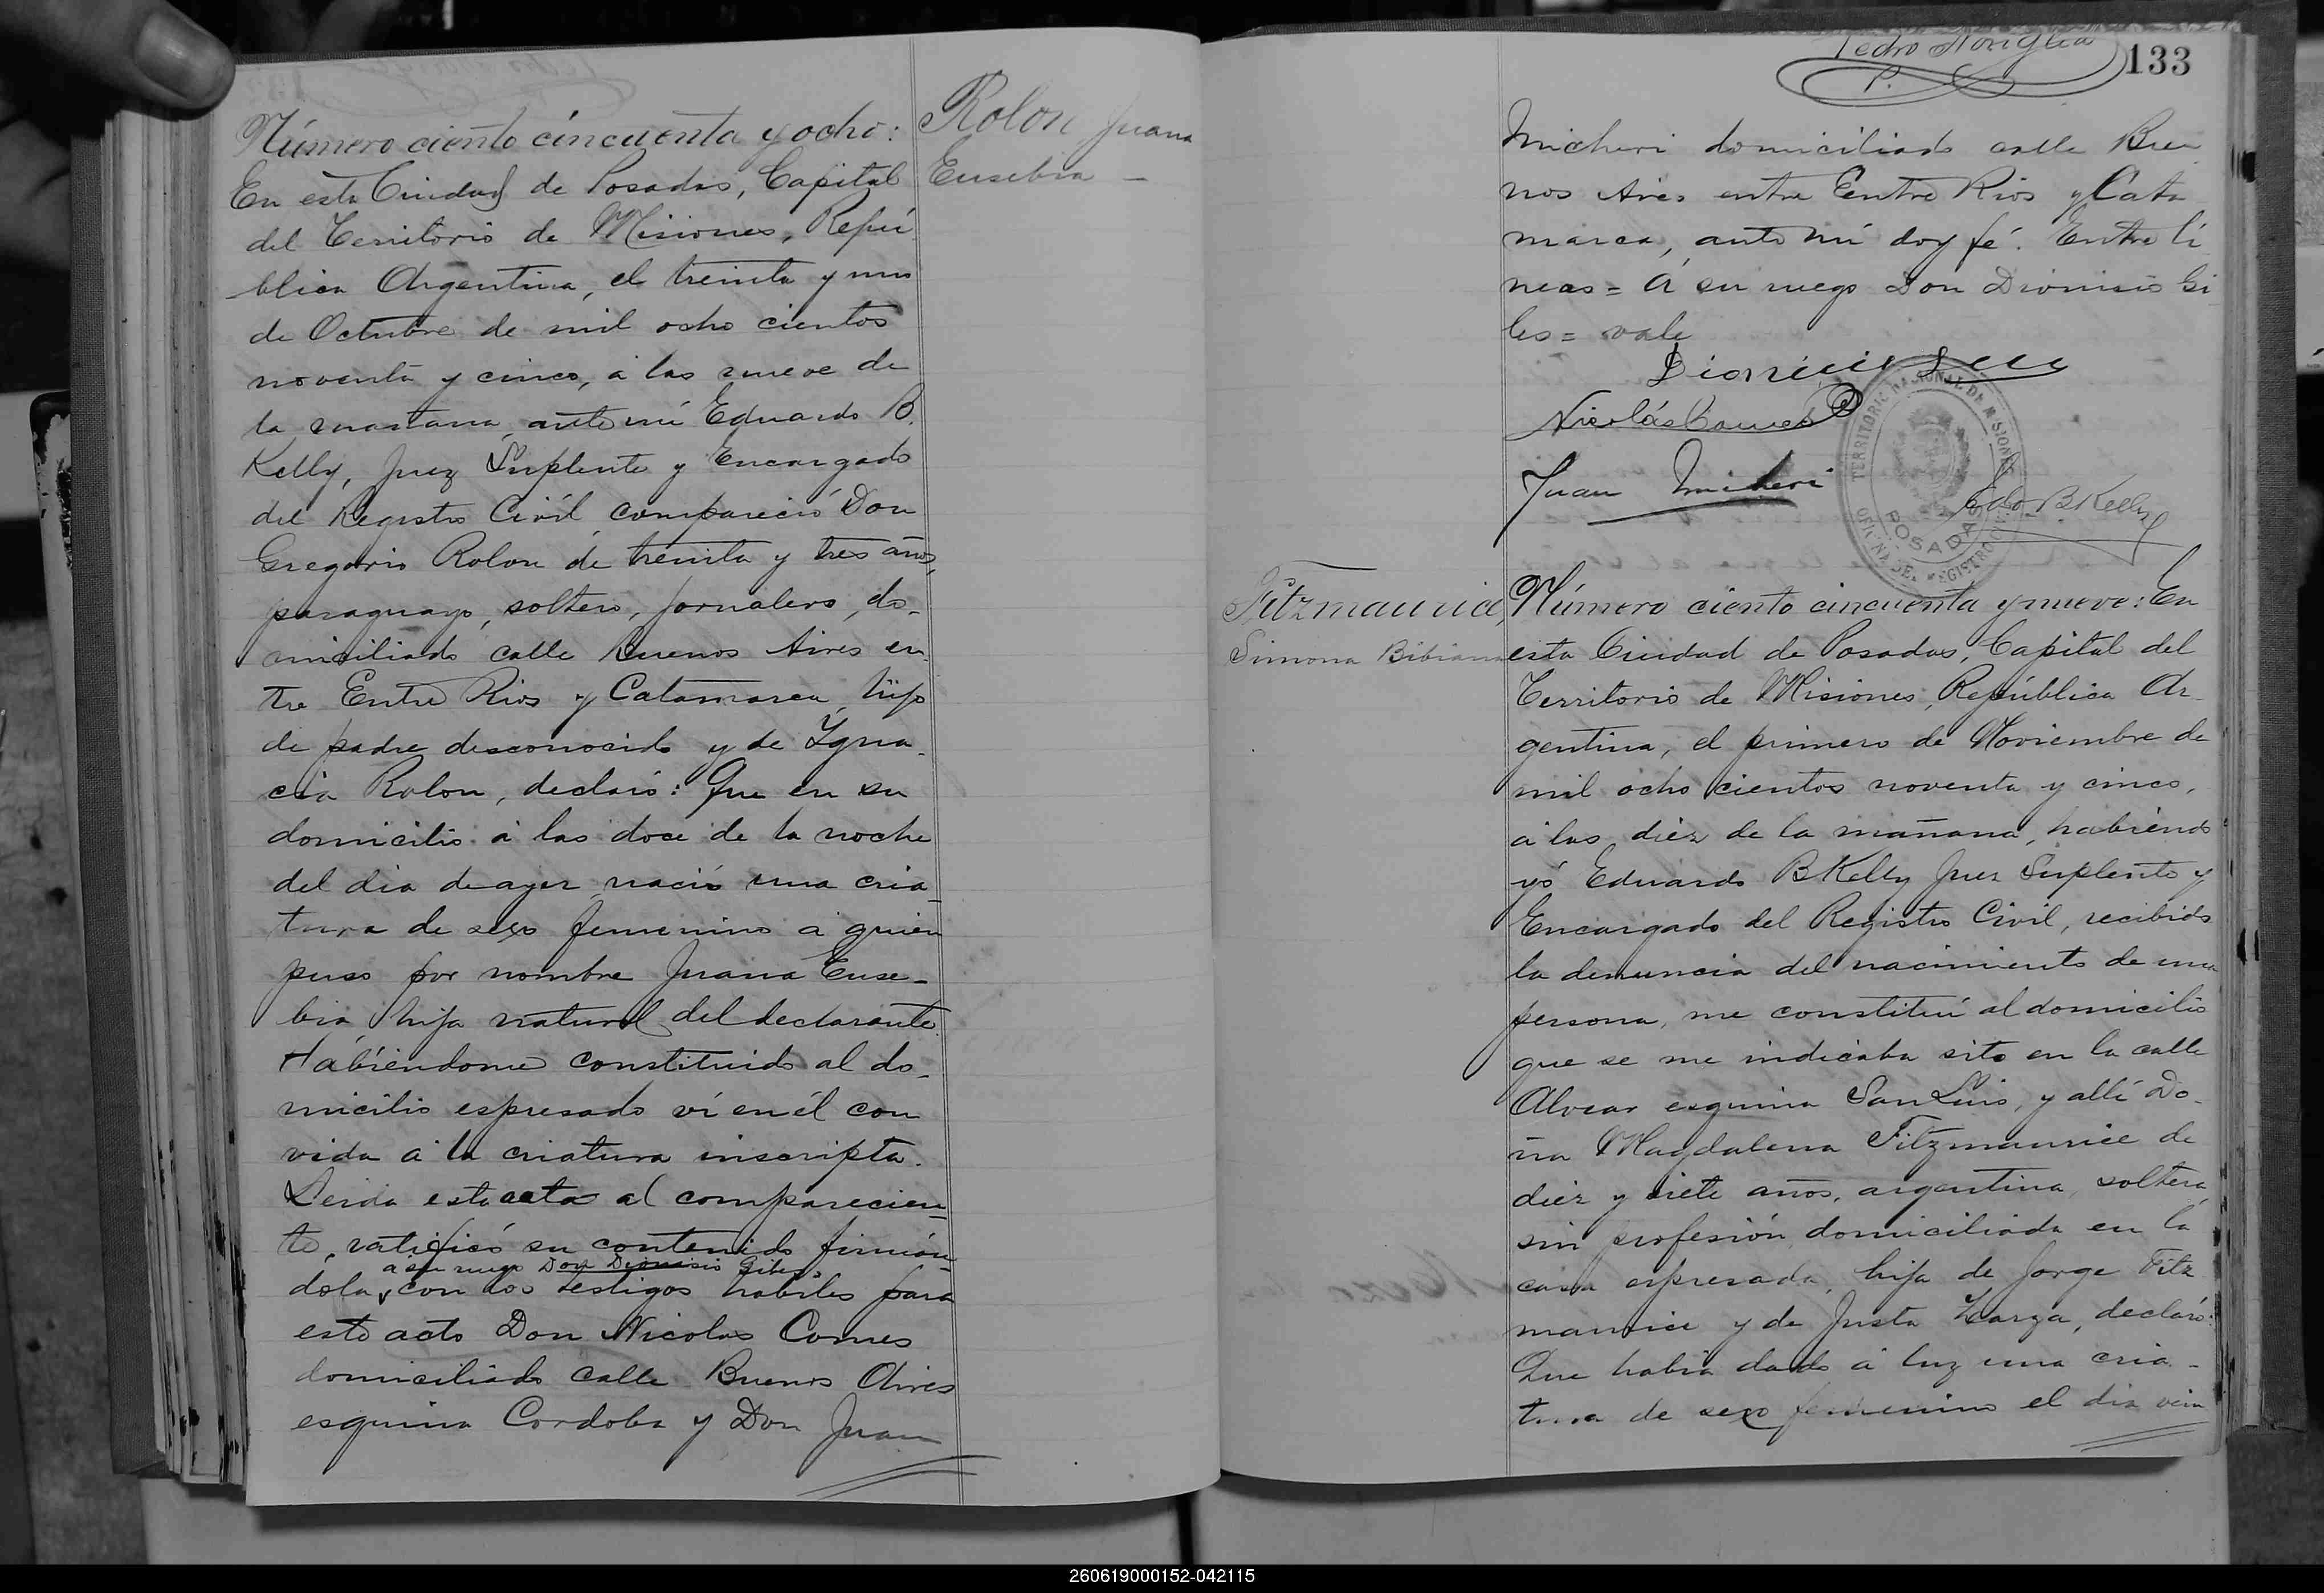 Número ciento cincuenta y ocho:
Rolon Juana
Eusebia —
En esta Ciudad de Posadas, Capital
del Territorio de Misiones, Repú
blica Argentina, el treinta y uno
de Octubre de mil ocho cientos
noventa y cinco, á las nueve de
la mañana, ante mí Eduardo B.
Kelly, Juez Suplente y Encargado
del Registro Civil compareció Don
Gregorio Rolon de treinta y tres años,
paraguayo, soltero, jornalero, do-
miciliado calle Buenos Aires en
tre Entre Rios y Catamarca, hijo
de padre desconocido y de Ygna-
cia Rolon, declaró: Que en su
domicilio á las doce de la noche
del dia de ayer nació una cria-
tura de sexo femenino á quien
puso por nombre Juana Euse-
bia hija natural del declarante.
Habiéndome constituido al do-
micilio espresado ví en él con
vida á la criatura inscripta.
Leida esta acta al comparecien-
te, ratificó su contenido firmán-
a su ruego Don Dionisio Giles
dola, con dos testigos habiles para
este acto Don Nicolas Comes
domiciliado calle Buenos Aires
esquina Cordoba y Don Juan
Pedro Noriglia
P.
133
Micheri domiciliado calle Bue
nos Aires entre Entre Rios y Cata
marca, ante mí doy fé. Entre li
neas = A su ruego Don Dionisio Gi
les = vale
Nicolás Comes
Juan Micheri
Edo B Kelly
TERRITORIO NACIONAL DE MISIONES
OFICINA DEL REGISTRO CIVIL
POSADAS
Fitzmaurice,
Simona Bibiana
Número ciento cincuenta y nueve: En
esta Ciudad de Posadas, Capital del
Territorio de Misiones, República Ar-
gentina, el primero de Noviembre de
mil ocho cientos noventa y cinco,
á las diez de la mañana, habiendo
yó Eduardo B Kelly Juez Suplente y
Encargado del Registro Civil, recibido
la denuncia del nacimiento de una
persona, me constituí al domicilio
que se me indicaba sito en la calle
Alvear esquina San Luis, y allí Do-
ña Magdalena Fitzmaurice de
diez y siete años, argentina, soltera,
sin profesión, domiciliada en la
casa espresada, hija de Jorge Fitz
maurice y de Justa Zarza, declaró:
Que habia dado á luz una cria-
tura de sexo femenino el dia vein
260619000152-042115